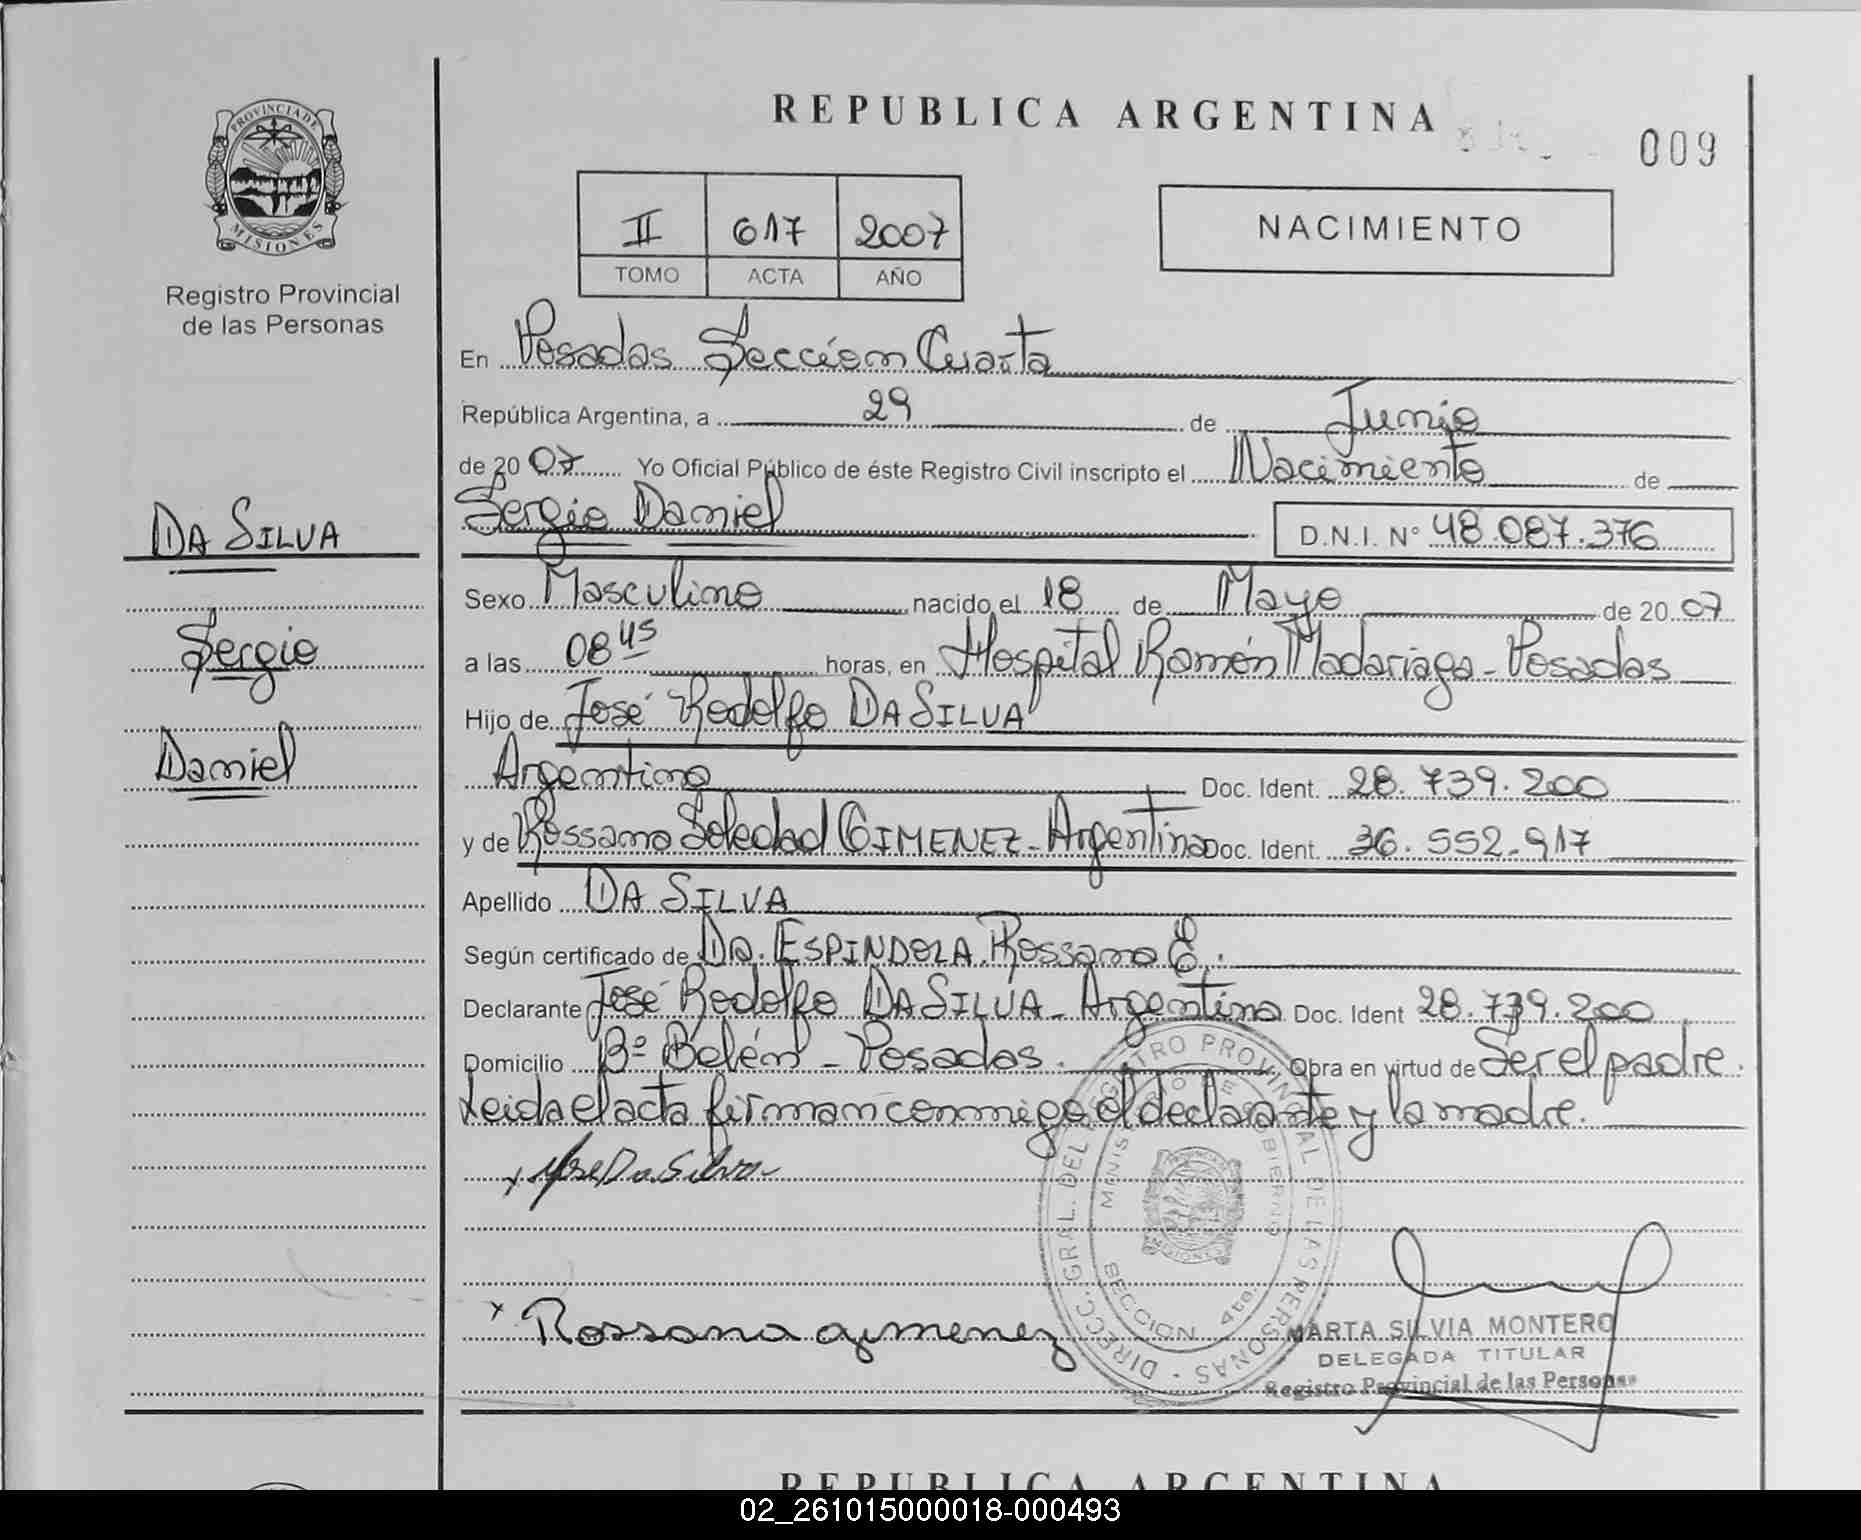 PROVINCIA DE
MISIONES
Registro Provincial
de las Personas
DA SILVA
Sergio
Daniel
REPUBLICA ARGENTINA
009
II 617 2007
TOMO ACTA AÑO
NACIMIENTO
En Posadas Sección Cuarta
República Argentina, a 29 de Junio
de 20 07 Yo Oficial Público de éste Registro Civil inscripto el Nacimiento de
Sergio Daniel D.N.I. Nº 48.087.376
Sexo Masculino nacido el 18 de Mayo de 20 07
a las 08 45 horas, en Hospital Ramón Madariaga - Posadas
Hijo de José Rodolfo DA SILVA
Argentino Doc. Ident. 28.739.200
y de Rossana Soledad GIMENEZ - Argentina Doc. Ident. 36.552.917
Apellido DA SILVA
Según certificado de Da. ESPINDOLA Rossana E.
Declarante José Rodolfo DA SILVA - Argentino Doc. Ident 28.739.200
Domicilio Bº Belén - Posadas. Obra en virtud de Ser el padre.
Leida el acta firman conmigo el declarante y la madre.
x Jose Da Silva
x Rossana gimenez
DIRECC. GRAL. DEL REGISTRO PROVINCIAL DE LAS PERSONAS
MINISTERIO DE GOBIERNO
MISIONES
SECCION 4ta.
MARTA SILVIA MONTERO
DELEGADA TITULAR
Registro Provincial de las Personas
REPUBLICA ARGENTINA
02_261015000018-000493